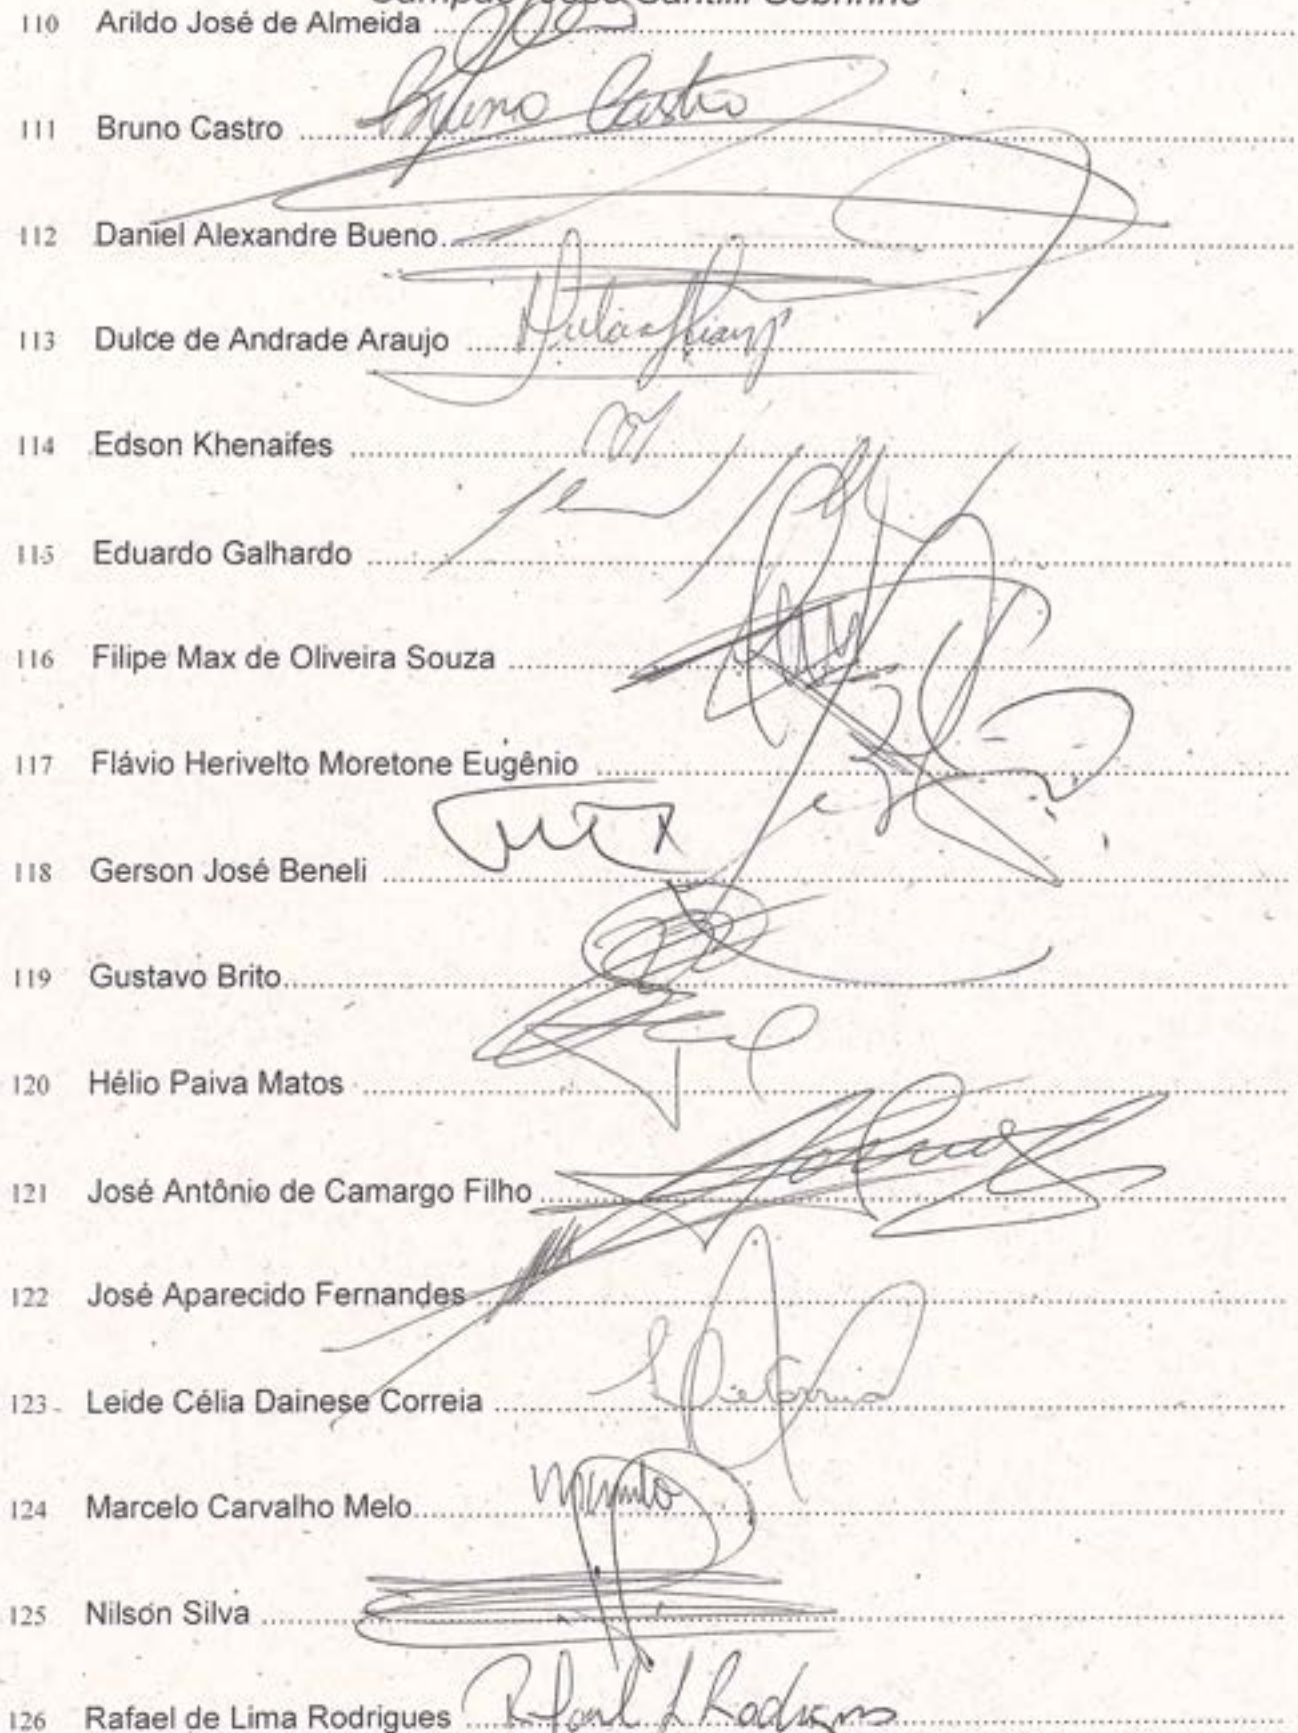 Campus "José Santilli Sobrinho"
110 Arildo José de Almeida
111 Bruno Castro Bruno Castro
112 Daniel Alexandre Bueno
113 Dulce de Andrade Araujo
114 Edson Khenaifes
115 Eduardo Galhardo
116 Filipe Max de Oliveira Souza
117 Flávio Herivelto Moretone Eugênio
118 Gerson José Beneli
119 Gustavo Brito
120 Hélio Paiva Matos
121 José Antônio de Camargo Filho
122 José Aparecido Fernandes
123 Leide Célia Dainese Correia
124 Marcelo Carvalho Melo
125 Nilson Silva
126 Rafael de Lima Rodrigues Rafael L Rodrigues